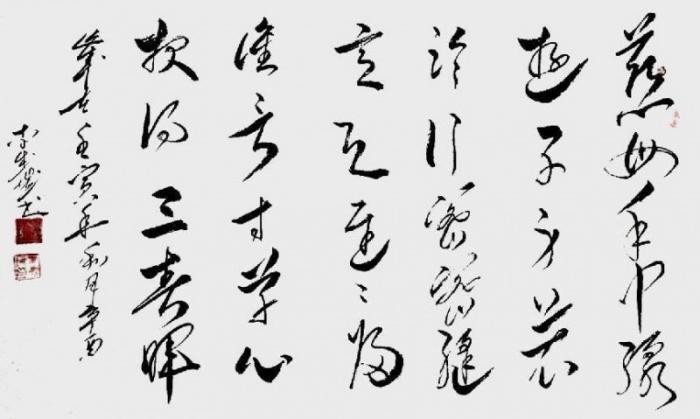 慈母手中線
遊子身上衣
臨行密密縫
意恐遲〻歸
誰言寸草心
報得三春暉
歲在壬寅年 月